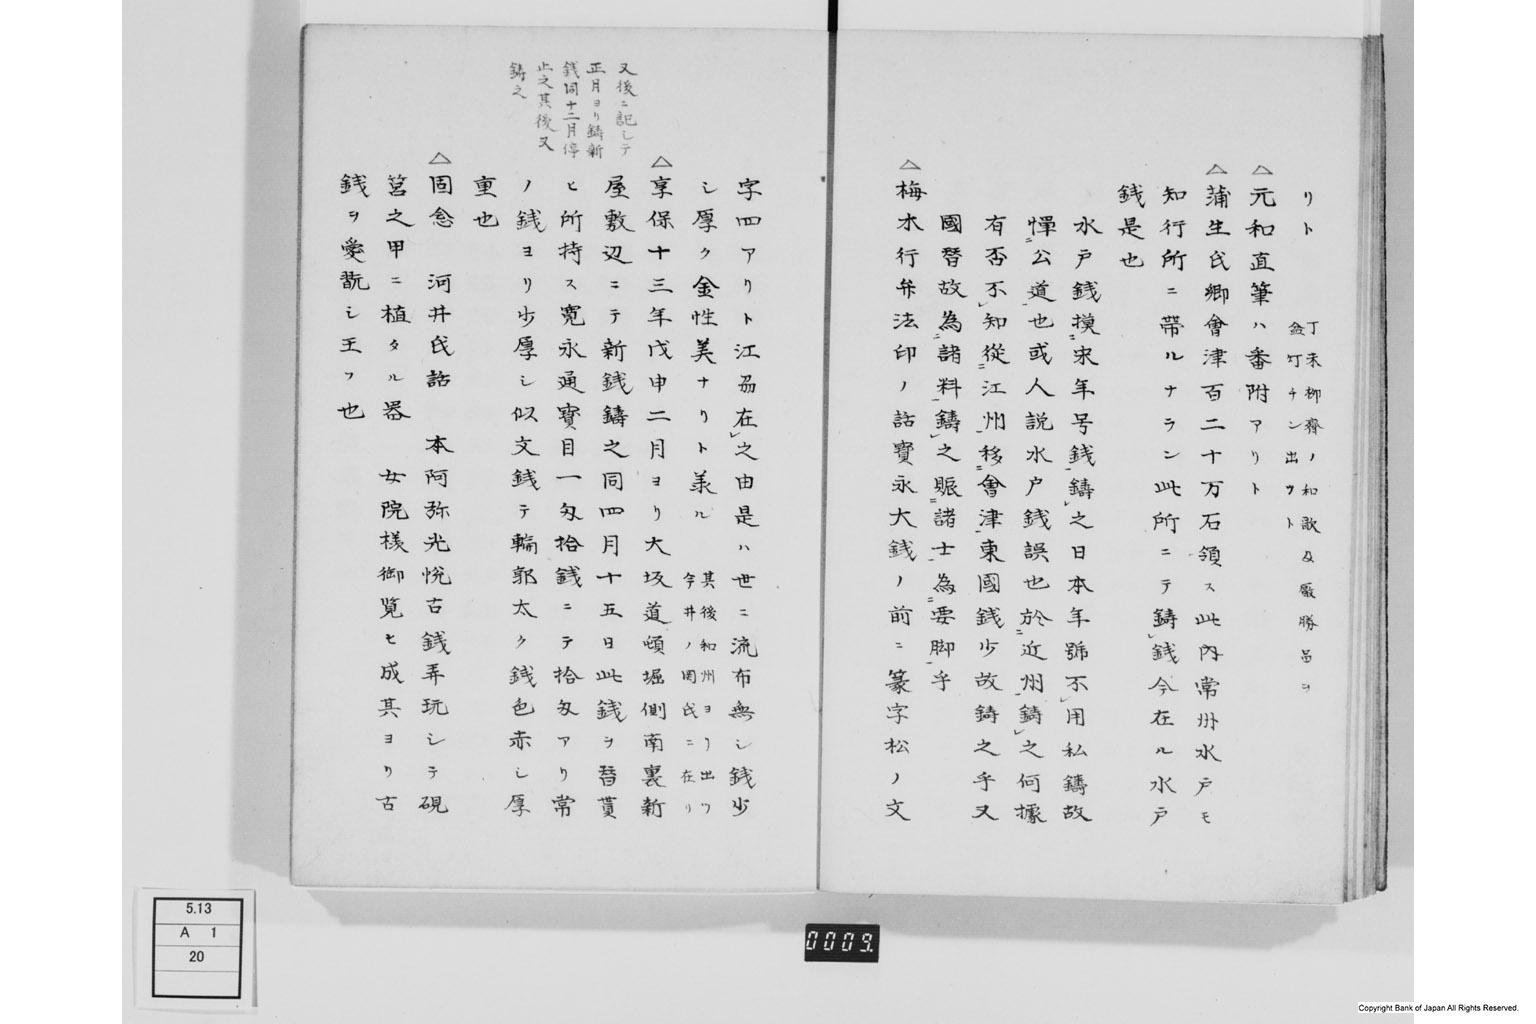 リト
丁未柳齋ノ和歌及厭勝品ヲ
△元和直筆ハ番附アリト
△蒲生氏郷會津百二十万石領ス此内常州水戸モ
知行所ニ帯ルナラン此所ニテ鋳銭今在ル水戸
銭是也
水戸銭摸宋年号銭鋳之日本年號不用私鋳故
憚公道也或人説水戸銭誤也於近州鋳之何據
有否不知従江州移會津東國銭少故鋳之乎又
國替故為諸料鋳之賑諸士為要脚乎
△梅木行弁法印ノ話寳永大銭ノ前ニ篆字松ノ文
字四アリト江刕在之由是ハ世ニ流布無シ銭少
シ厚ク金性美ナリト義ル
其後和州ヨリ出ツ
今井ノ岡氏ニ在リ
△享保十三年戊申二月ヨリ大坂道頓堀側南裏新
屋敷辺ニテ新銭鋳之同四月十五日此銭ヲ替貰
ヒ所持ス寛永通寳目一匁拾銭ニテ拾匁アリ常
ノ銭ヨリ少厚シ似文銭テ輪郭太ク銭色赤シ厚
重也
又後ニ記シテ
正月ヨリ鋳新
銭同十二月停
止之其後又
鋳之
△固念 河井氏話 本阿弥光悦古銭弄玩シテ硯
筥之甲ニ植タル器 女院様御覧セ成其ヨリ古
銭ヲ愛翫シ玉フ也
5.13
A 1
20
0009.
Copyright Bank of Japan All Rights Reserved.